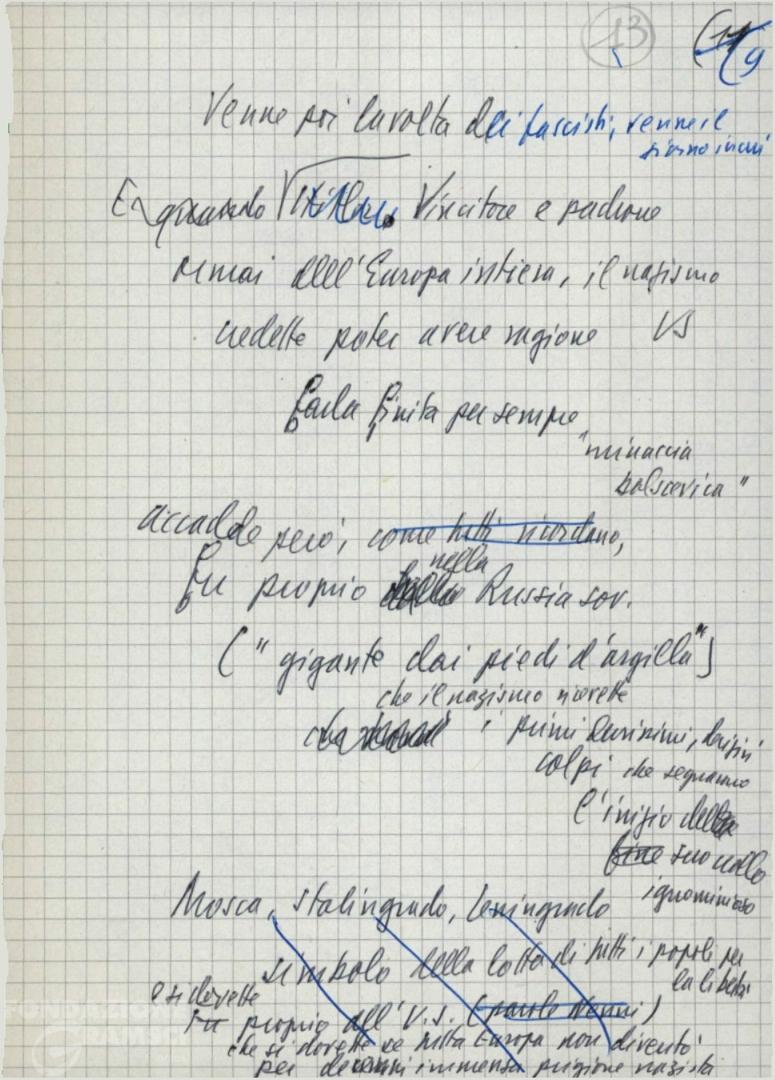 13
(9
Venne poi la volta dei fascisti, venne il
giorno in cui
E quando Hitler. Vincitore e padrone
ormai dell'Europa intiera, il nazismo
credette poter avere ragione VS
farla finita per sempre
"minaccia
bolscevica"
accadde però, come tutti ricordano,
nella
fu proprio Russia sov.
("gigante dai piedi d'argilla")
che il nazismo ricevette
i primi durissimi, decisivi
colpi che segnarono
l'inizio del
fine suo crollo
ignominioso
Mosca, Stalingrado, Leningrado
simbolo della lotta di tutti i popoli per
la libertà
e si dovette
Fu proprio all'U.S. (parole Nenni)
che si dovette se tutta Europa non diventò
per decenni immensa prigione nazista
FONDAZIONE